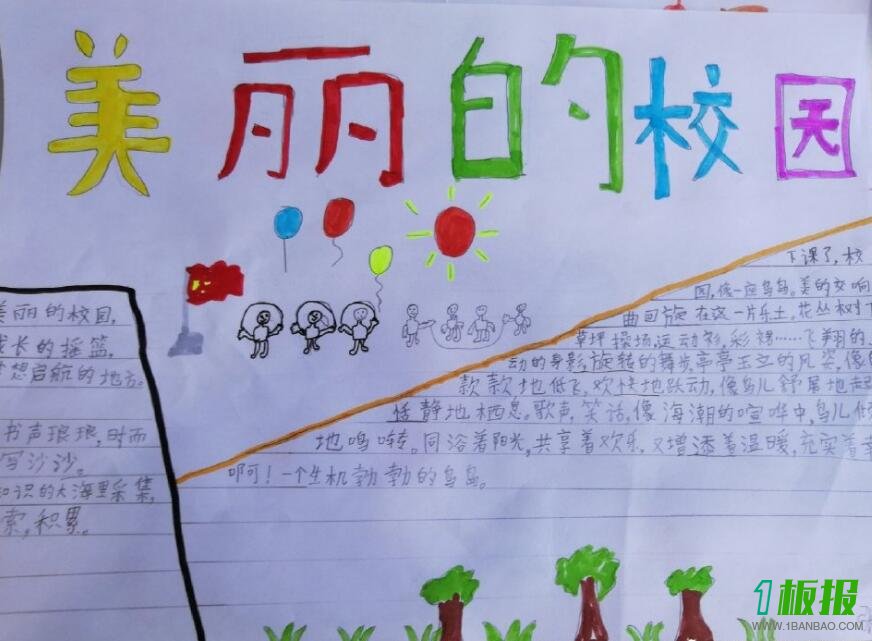 美丽的校园
美丽的校园,
成长的摇篮,
想启航的地方。
书声琅琅,时而
写沙沙。
知识的大海里采集,
索,积累。
下课了,校
园,像一座鸟岛。美的交响
曲回旋在这一片乐土,花丛树下
草坪操场,运动衫,彩裙……飞翔的
动的身影,旋转的舞步,亭亭玉立的风姿,像
款款地低飞,欢快地跃动,像鸟儿舒展地
恬静地栖息。歌声,笑话,像海潮的喧哗中,鸟儿
地鸣啭。同浴着阳光,共享着欢乐,又增添着温暖,充实着
啊可!一个生机勃勃的鸟岛。
1板报
WWW.1BANBAO.COM